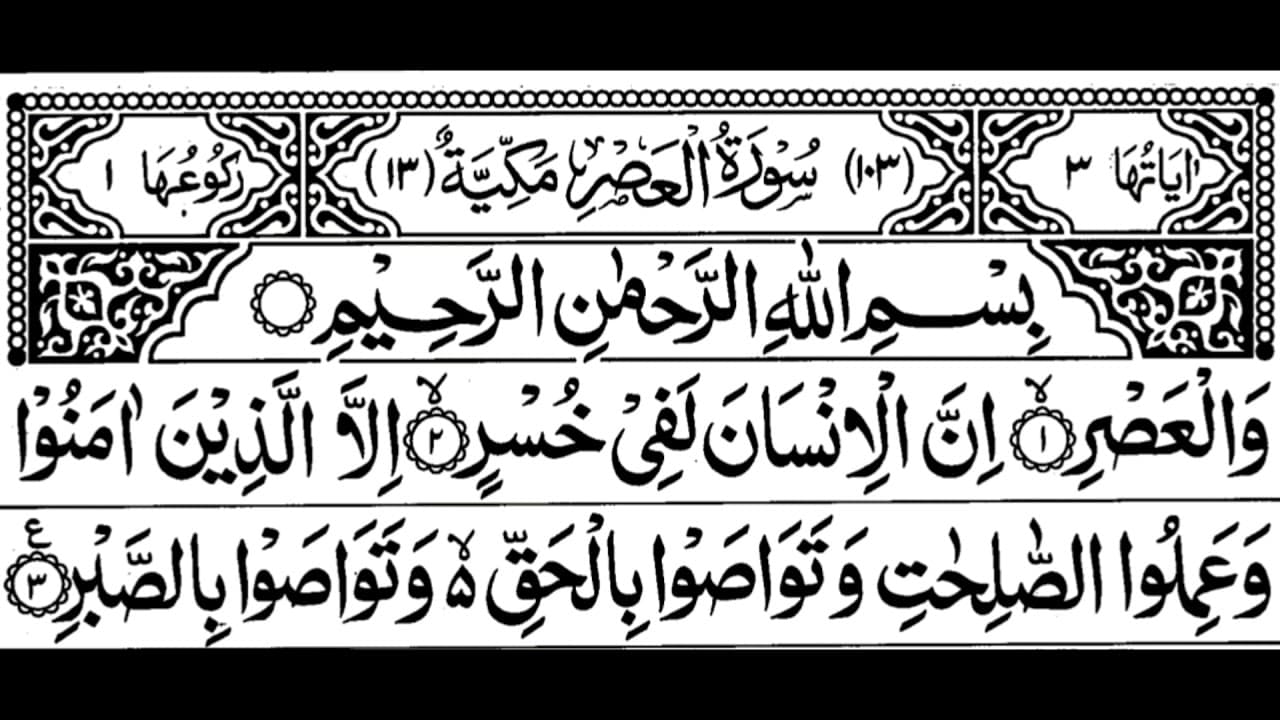 اٰيَاتُهَا ٣ (١٠٣) سُوْرَةُ الْعَصْرِ مَكِّيَّةٌ (١٣) رُكُوْعُهَا ١
بِسْمِ اللّٰهِ الرَّحْمٰنِ الرَّحِيْمِ
وَالْعَصْرِ ۙ﴿١﴾ اِنَّ الْاِنْسَانَ لَفِيْ خُسْرٍ ۙ﴿٢﴾ اِلَّا الَّذِيْنَ اٰمَنُوْا
وَعَمِلُوا الصّٰلِحٰتِ وَتَوَاصَوْا بِالْحَقِّ ۵ۙ وَتَوَاصَوْا بِالصَّبْرِ ﴿٣﴾ ع